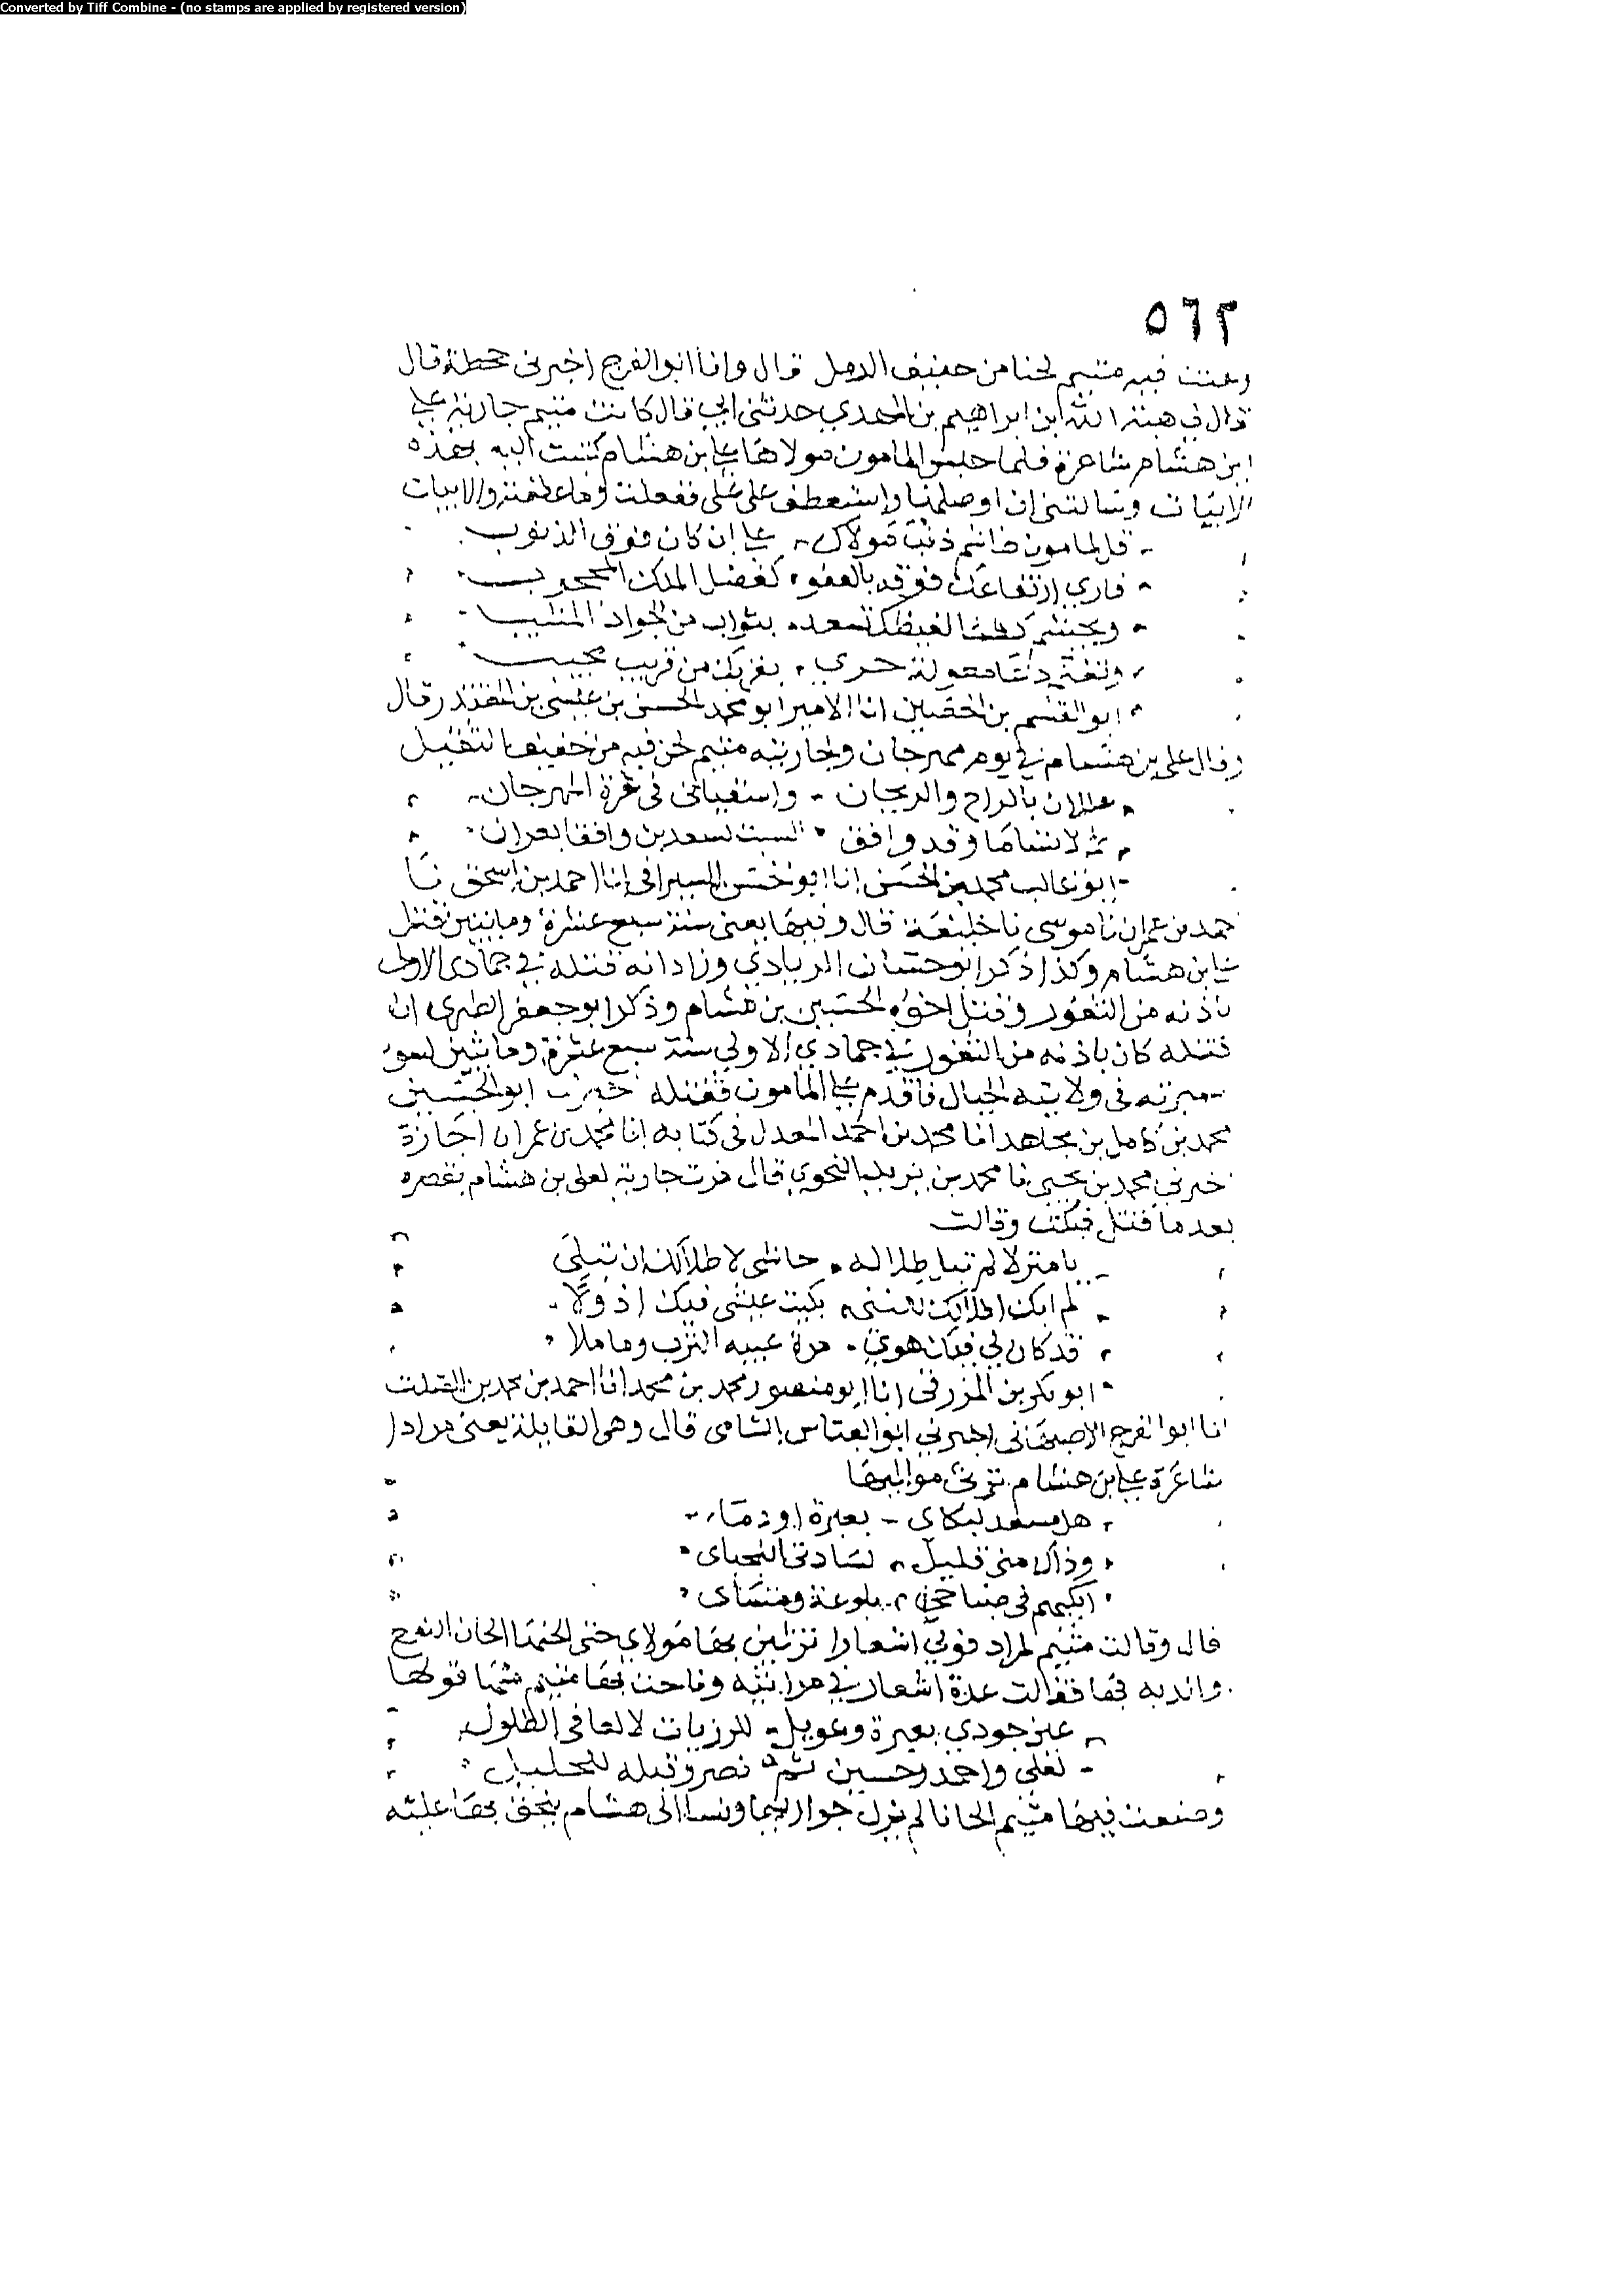 Converted by Tiff Combine - (no stamps are applied by registered version)
٥٦٢
وغنت فيه متيم لحنا من خفيف الرمل قال وانا ابو الفرج اخبرني جحظة قال
قال لي هبة الله ابن ابراهيم بن المهدي حدثني ابي قال كانت متيم جارية علي
ابن هشام شاعرة فلما حبس المامون مولاها علي ابن هشام كتبت اليه بهذه
الابيات وسالتني ان اوصلها واستعطف على علي ففعلت وما عطفته والابيات
قل لمامون هاشم ذنب مولاك علي ان كان فوق الذنوب
فاري ارتفاعك فوقه بالعفو كفضل الملك المحجوب
بثواب من الجواد المثيب
حري بقربك من قريب مجيب
ابو القسم بن الحصين انا الامير ابو محمد الحسن بن عيسى بن المقتدر قال
وقال علي بن هشام في يوم مهرجان ولجاريته متيم لحن فيه من خفيف الثقيل
عللاني بالراح والريحان واسقياني في غرة المهرجان
وقد وافق السبت لسعدين وافقا بعران
ابو غالب محمد بن الحسن انا ابو الحسن السيرافي انا احمد بن اسحق نا
احمد بن عمران نا موسى نا خليفة قال وفيها يعني سنة سبع عشرة ومايتين قتل
علي ابن هشام وكذا ذكر ابو حسان الزيادي وزاد انه قتله في جمادى الاولى
باذنه من الثغور وقتل اخوه الحسين بن هشام وذكر ابو جعفر الطبري ان
قتله كان باذنه من الثغور في جمادي الاولي سنة سبع عشرة ومايتين لسوء
سيرته في ولايته الجبال فاقدم علي المامون فقتله ابو الحسين
محمد بن كامل بن مجاهد انا محمد بن احمد المعدل في كتابه انا محمد بن عمران اجازة
اخبرني محمد بن يحيى نا محمد بن يزيد النحوي قال مرت جارية لعلي بن هشام بقصره
بعد ما قتل فبكت وقالت
يا منزلا لم تبل اطلاله حاشى لاطلالك ان تبلى
لم ابك اطلالك لكنني بكيت عيشى فيك اذ ولا
قد كان لي فيك هوي مرة غيبه الترب وما ملا
ابو بكر بن المزرفي انا ابو منصور محمد بن محمد انا احمد بن محمد بن الصلت
انا ابو الفرج الاصبهاني اخبرني ابو العباس الشامي قال وهي القايلة يعني مراد
شاعرة علي ابن هشام ترثي مواليها
هل مسعد لبكاي بعبرة او دماء
وذاك مني قليل لسادتي النجباي
ابكيهم في صباحي بلوعة ومساي
قال وقالت متيم لمراد قولي اشعارا ترثين بها مولاي حتى الحنها الحان النوح
واندبه بها فقالت عدة اشعار في مراثيه وناحت بها متيم منها قولها
عين جودي بعبرة وعويل للرزيات لا لعافي الطلول
لعلي واحمد وحسين ثم نصر وقبله للخليل
وصنعت فيها متيم الحانا لم يزل جواريها ونسا ال هشام ينحن بها عليه